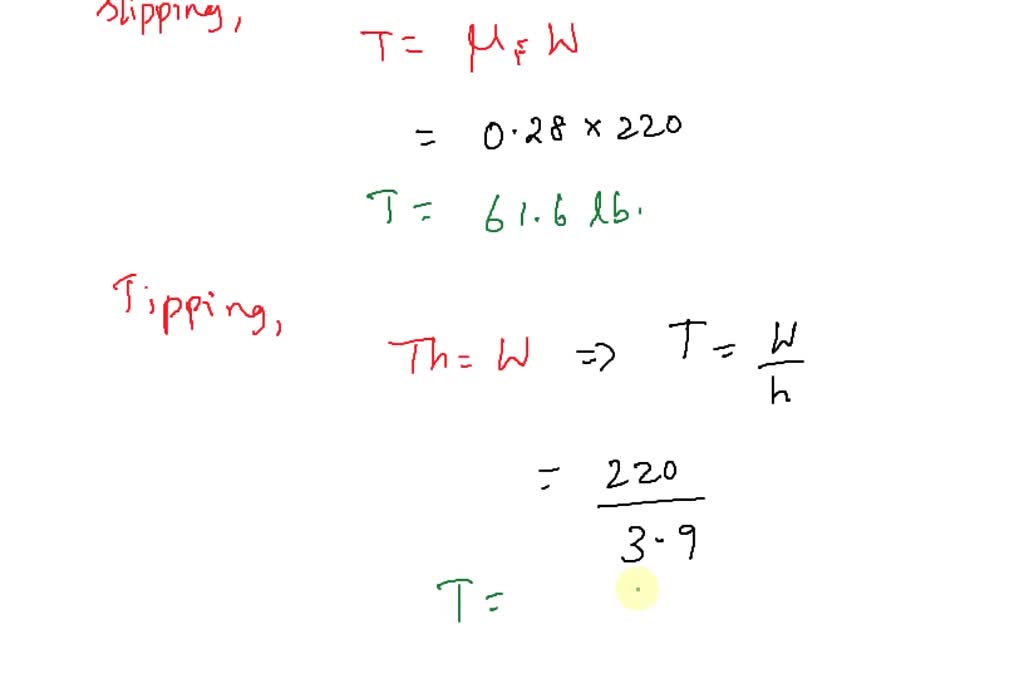 slipping,
T = μs W
= 0.28 × 220
T = 61.6 lb.
Tipping,
Th = W ⇒ T = W/h
= 220/3.9
T =